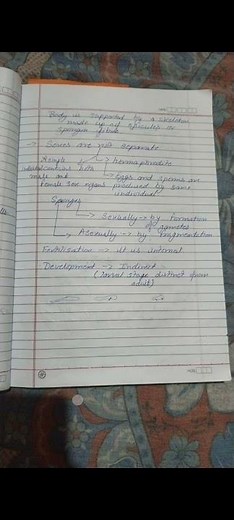 Body is supported by a skeleton
made up of spicules or
spongin fibres
→ Sexes are not separate
A single → hermaphrodite
individual has → Eggs and sperms are
male and produced by same
female sex organs individual
Sponges
→ Sexually → by formation
of gametes
→ Asexually → by fragmentation
Fertilization → It is internal
Development → Indirect
(larval stage distinct from
adult)